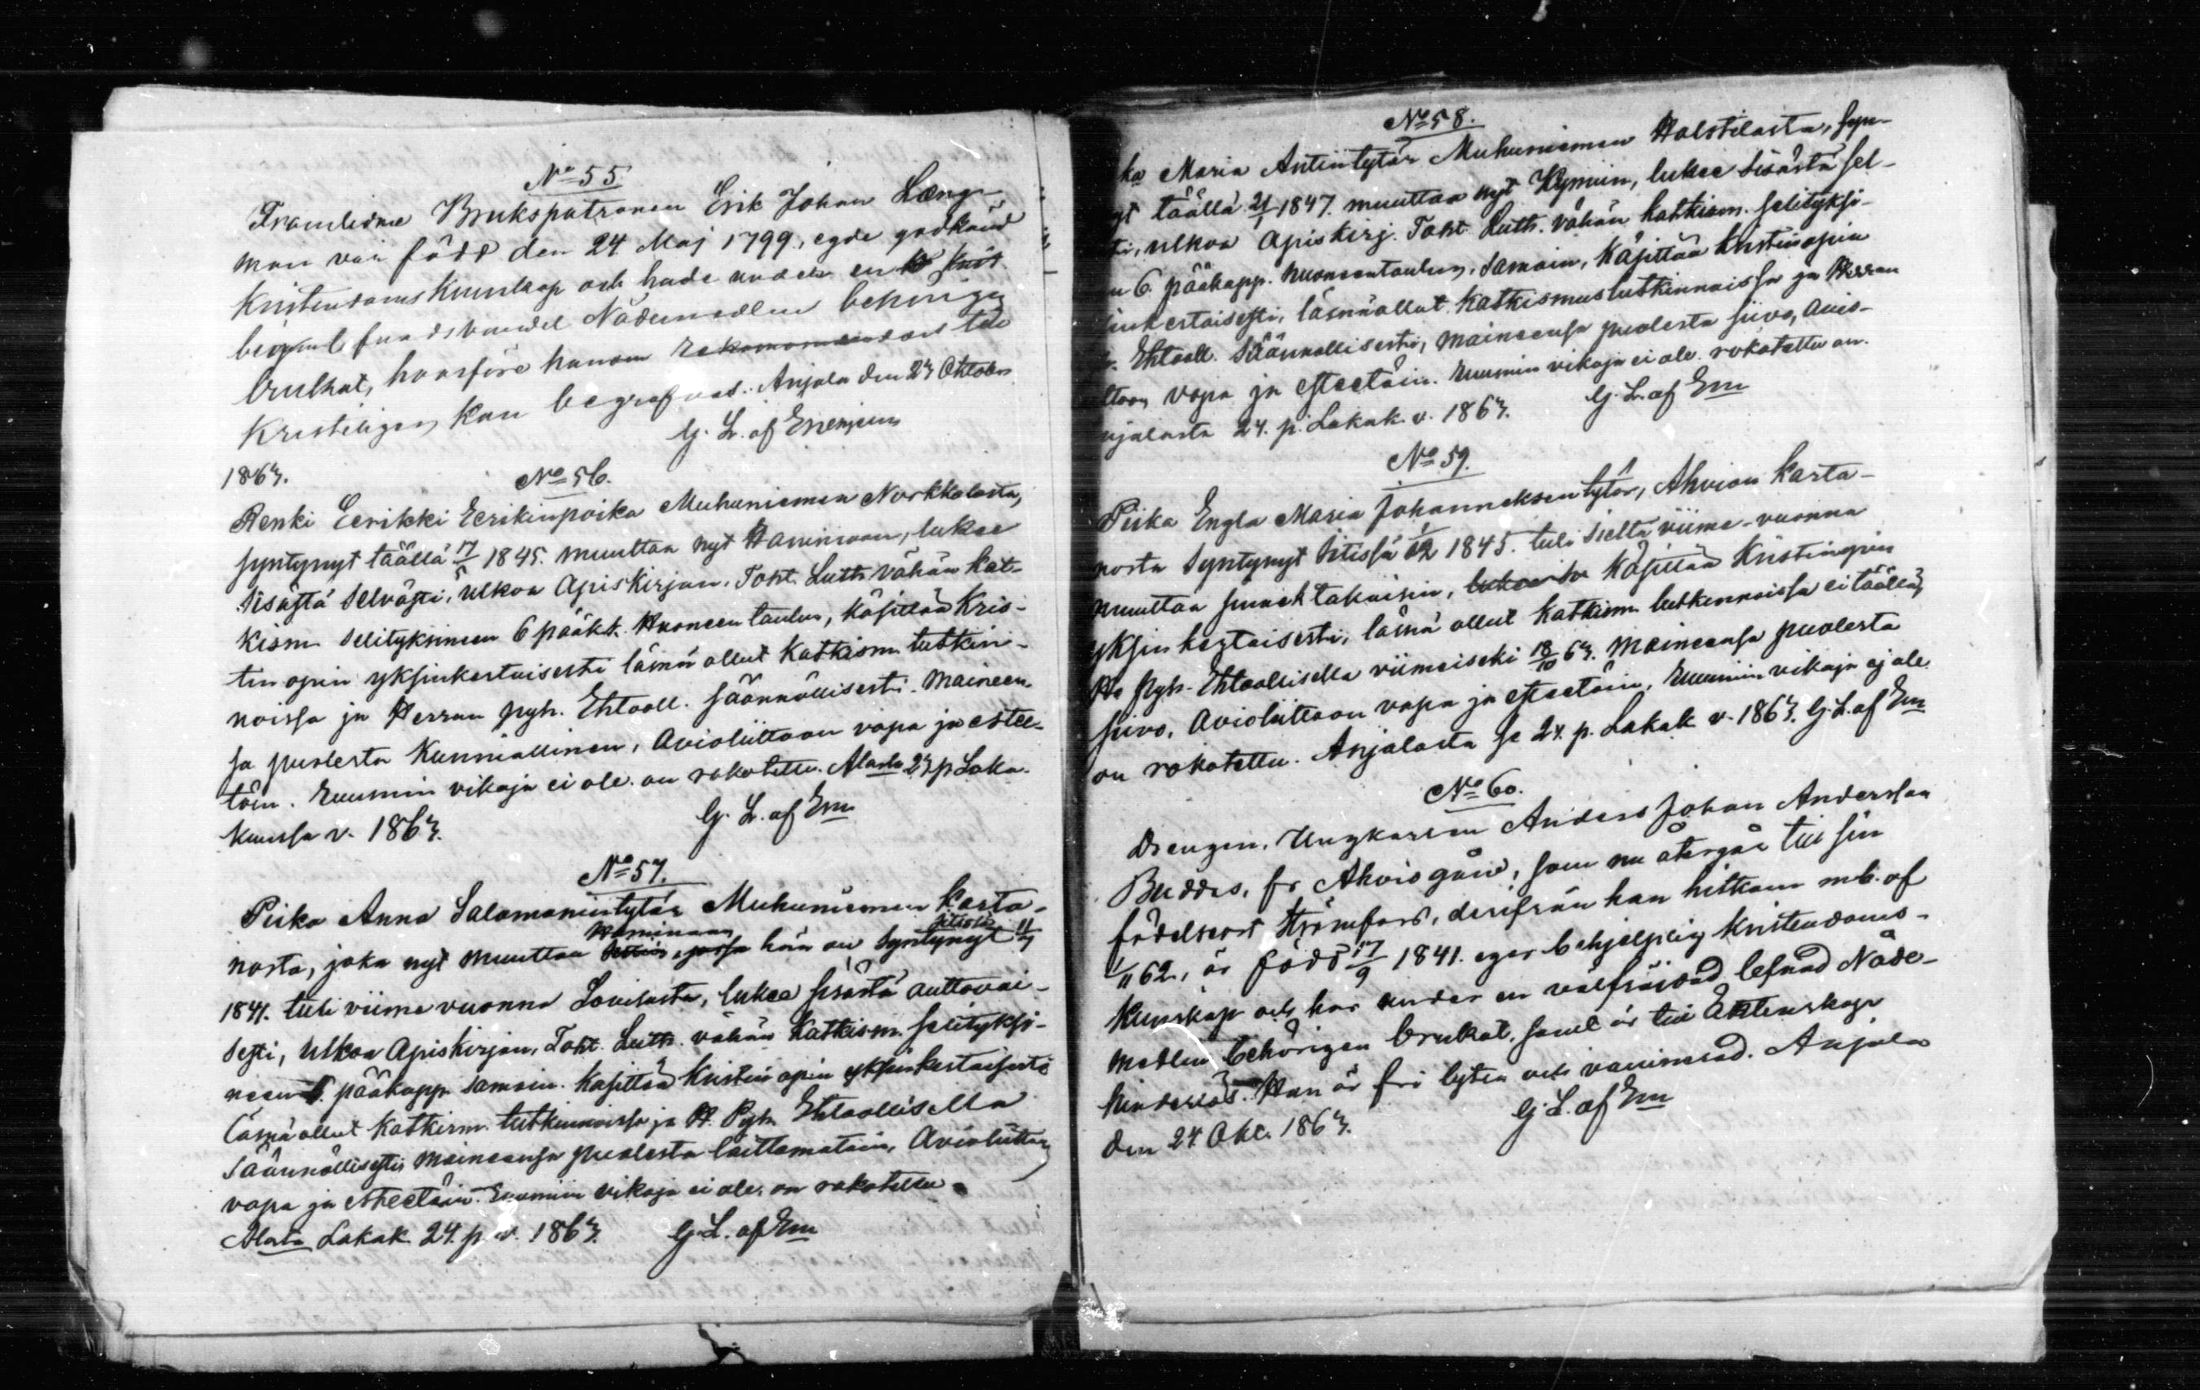 No 55.
Framlidne Brukspatronen Erik Johan Læng-
man var född den 24 Maj 1799, egde godkänd
Kristendomskunskap och hade under en
lefnadsvandel Nådemedlen behörigen
brukat, hvarföre hanom
Kristeligen kan begrafvas. Anjala den 23 Oktober
G. L. af Enehjelm
1863.
No 56.
Renki Eerikki Eerikinpoika Muhuniemen Nurkkalasta,
syntynyt täällä 17/5 1845. muuttaa nyt Haminaan, lukee
sisästä selvästi, ulkoa Apiskirjan. Toht. Luth. Vähän kat-
kism. selityksineen 6 pääkt. Huoneentaulun, käsittää Kris-
tin opin yksinkertaisesti läsnä ollut Katkism. tutkin-
noissa ja Herran pyh. Ehtooll. säännöllisesti. Maineen-
sa puolesta Kunniallinen, Avioliittoon vapa ja estee-
töin. Ruumiin vikaja ei ole. on rokotettu. Alasta 23 p Loka-
kuussa v. 1863.
G. L. af Em
No 57.
Piika Anna Salamonintytär Muhuniemen Karta-
nosta, joka nyt muuttaa Haminaan, hän on Syntynyt Sitissä 11/7
1841. tuli viime vuonna Lovisasta, lukee sisästä auttavai-
sesti, Ulkoa Apiskirjan, Toht. Luth. vähän Katkism. selityksi-
neen 5 pääkapp. samoin. Käsittää Kristin opin yksinkertaisesti
Läsnä ollut Katkism. tutkinnoissa ja H. Pyh. Ehtoollisella
Säännöllisesti Maineensa puolesta laittamatoin, Avioliittoon
vapa ja esteetöin. Ruumiin vikaja ei ole. on rokotettu.
Alasta Lokak. 24. p v. 1863. G. L. af Em
No 58.
ka Maria Antintytär Muhuniemen Halstilasta, syn-
yt täällä 21/1 1847. muuttaa nyt Kymiin, lukee sisästä sel-
ti, ulkoa Apiskirj. Toht. Luth. vähän katkism. selityksi-
n 6 pääkapp. Huoneentaulun, samoin, Käsittää Kristinopin
sinkertaisesti, läsnäollut Katkismustutkinnoissa ja Herran
Ehtooll. Säännöllisesti, maineensa puolesta siivo, Avio-
ttoon vapa ja esteetöin. Ruumin vikaja ei ole. rokotettu on.
njalasta 24. p. Lokak. v. 1863. G. L. af Em
No 59.
Piika Engla Maria Johanneksentytär, Ahvion Karta-
nosta Syntynyt Sitissä 1/12 1845. tuli sieltä viime-vuonna
muuttaa sinnek takaisin, Käsittää Kristinopin
yksinkertaisesti, läsnä ollut Katkism. tutkinnoissa ei täällä,
Ho Pyh. Ehtoollisella viimeiseksi 18/10 63. Maineensa puolesta
siivo, Avioliittoon vapa ja esteetöin, Ruumiin vikaja ej ole.
on rokotettu. Anjalasta se 24. p. Lokak v. 1863. G. L. af Em
No 60.
Drengen, Ungkarlen Anders Johan Andersson
Buddas, fr Ahvio gård, som nu återgår till sin
födelseort Strömfors, derifrån han hitkom m b. af
1/11 62., är född 17/9 1841. eger behjelplig Kristendoms-
kunskap och har under en välfrejdad lefnad Nåde-
medlen behörigen brukat. samt är till Äktenskap
hinderlös. Han är fri lyten och vaccinerad. Anjala
den 24 Okt. 1863. G. L. af Em